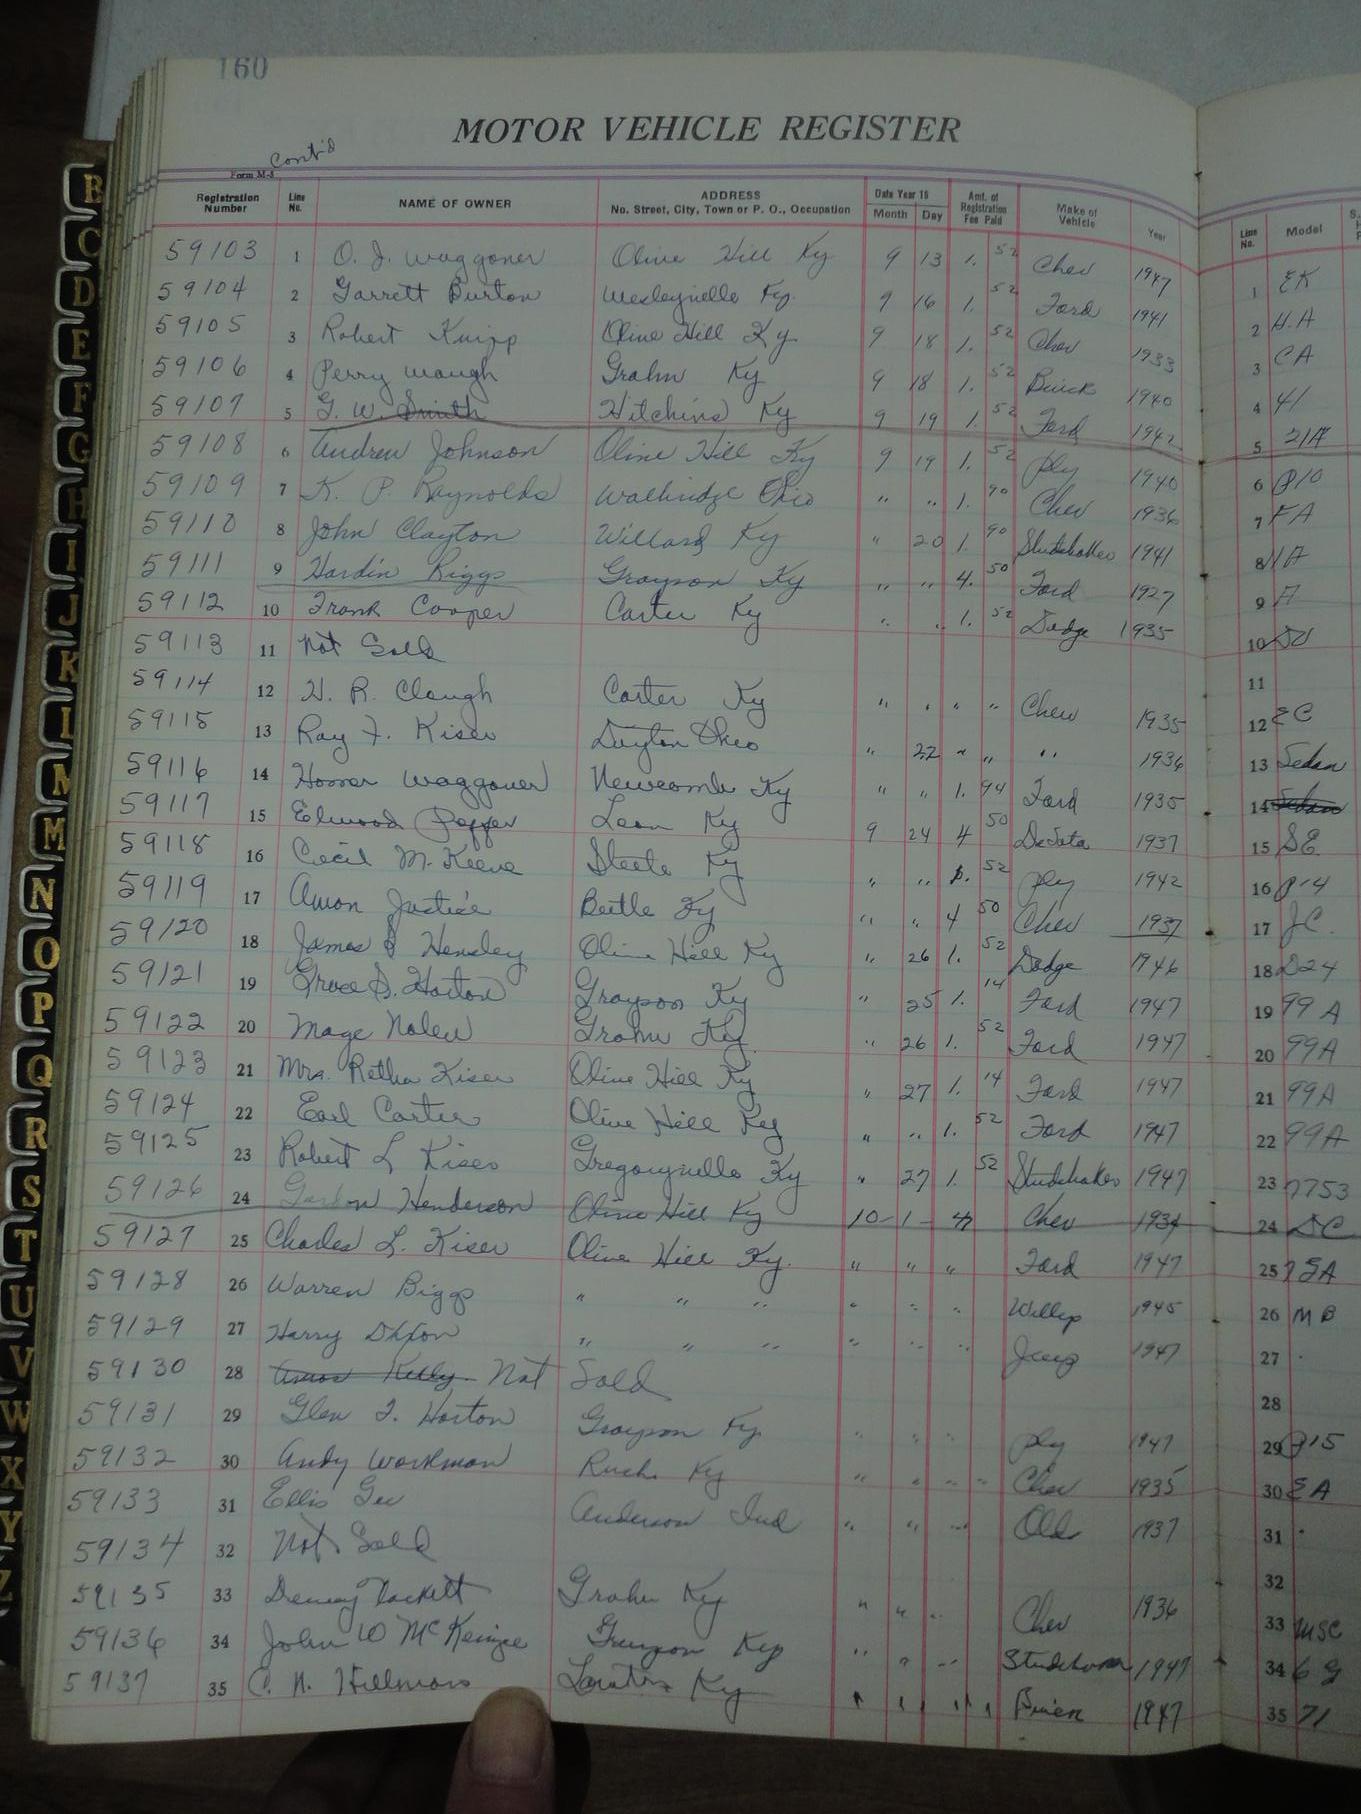 160
MOTOR VEHICLE REGISTER
Cont'd
Form M-8
Registration Number Line No. NAME OF OWNER ADDRESS No. Street, City, Town or P. O., Occupation Date Year 19 Month Day Amt. of Registration Fee Paid Make of Vehicle Year Line No. Model
59103 1 O. J. Waggoner Olive Hill Ky 9 13 1. 52 Chev 1947 1 EK
59104 2 Garrett Burton Wesleyville Ky. 9 16 1. 52 Ford 1941 2 H.A
59105 3 Robert Knipp Olive Hill Ky 9 18 1. 52 Chev 1933 3 CA
59106 4 Perry Waugh Grahn Ky 9 18 1. 52 Buick 1940 4 41
59107 5 G. W. Smith Hitchins Ky 9 19 1. 52 Ford 1942 5 21A
59108 6 Andrew Johnson Olive Hill Ky 9 19 1. 52 Ply 1940 6 P10
59109 7 K. P. Raynolds Walbridge Ohio " " 1. 90 Chev 1936 7 FA
59110 8 John Clayton Willard Ky " 20 1. 90 Studebaker 1941 8
59111 9 Hardin Riggs Grayson Ky " " 4. 50 Ford 1927 9 A
59112 10 Frank Cooper Carter Ky " " 1. 52 Dodge 1935 10 DU
59113 11 Not Sold 11
59114 12 H. R. Clough Carter Ky " " " " Chev 1935 12 EC
59115 13 Ray F. Kiser Dayton Ohio " 22 " " " 1936 13 Sedan
59116 14 Homer Waggoner Newcombe Ky " " 1. 94 Ford 1935 14 Sedan
59117 15 Elwood Pepper Leon Ky 9 24 4 50 DeSota 1937 15 SE
59118 16 Cecil McKeeve Steele Ky " " 1. 52 Ply 1942 16 P14
59119 17 Amon Justice Beetle Ky " " 4 50 Chev 1937 17 JC.
59120 18 James Hensley Olive Hill Ky " 26 1. 52 Dodge 1946 18 D24
59121 19 Grace S. Horton Grayson Ky " 25 1. 14 Ford 1947 19 99 A
59122 20 Mage Nolen Grahn Ky. " 26 1. 52 Ford 1947 20 99A
59123 21 Mrs. Retha Kiser Olive Hill Ky " 27 1. 14 Ford 1947 21 99A
59124 22 Earl Carter Olive Hill Ky " " 1. 52 Ford 1947 22 99A
59125 23 Robert L Kiser Gregoryville Ky " 27 1. 52 Studebaker 1947 23
59126 24 Gordon Henderson Olive Hill Ky 10 - 1 - Chev 1934 24 DC
59127 25 Charles L. Kiser Olive Hill Ky. " " " Ford 1947 25
59128 26 Warren Biggs " " " " " " Willys 1945 26 MB
59129 27 Harry Dixon " " " " " " Jeep 1947 27
59130 28 Amos Kelly Not Sold 28
59131 29 Glen F. Horton Grayson Ky. " " " Ply 1947 29 P15
59132 30 Andy Workman Rush Ky " " " " Chev 1935 30 EA
59133 31 Ellis Gee Anderson Ind " " " Olds 1937 31
59134 32 Not Sold 32
59135 33 Dewey Tackett Grahn Ky " " " Chev 1936 33
59136 34 John W McKenzie Grayson Ky " " " 1947 34 6 G
59137 35 C. N. Hillman Ky " " " " 1947 35 71
B
C
D
E
F
G
H
I
J
K
L
M
M
N
O
P
Q
R
S
T
U
V
W
X
Y
Z